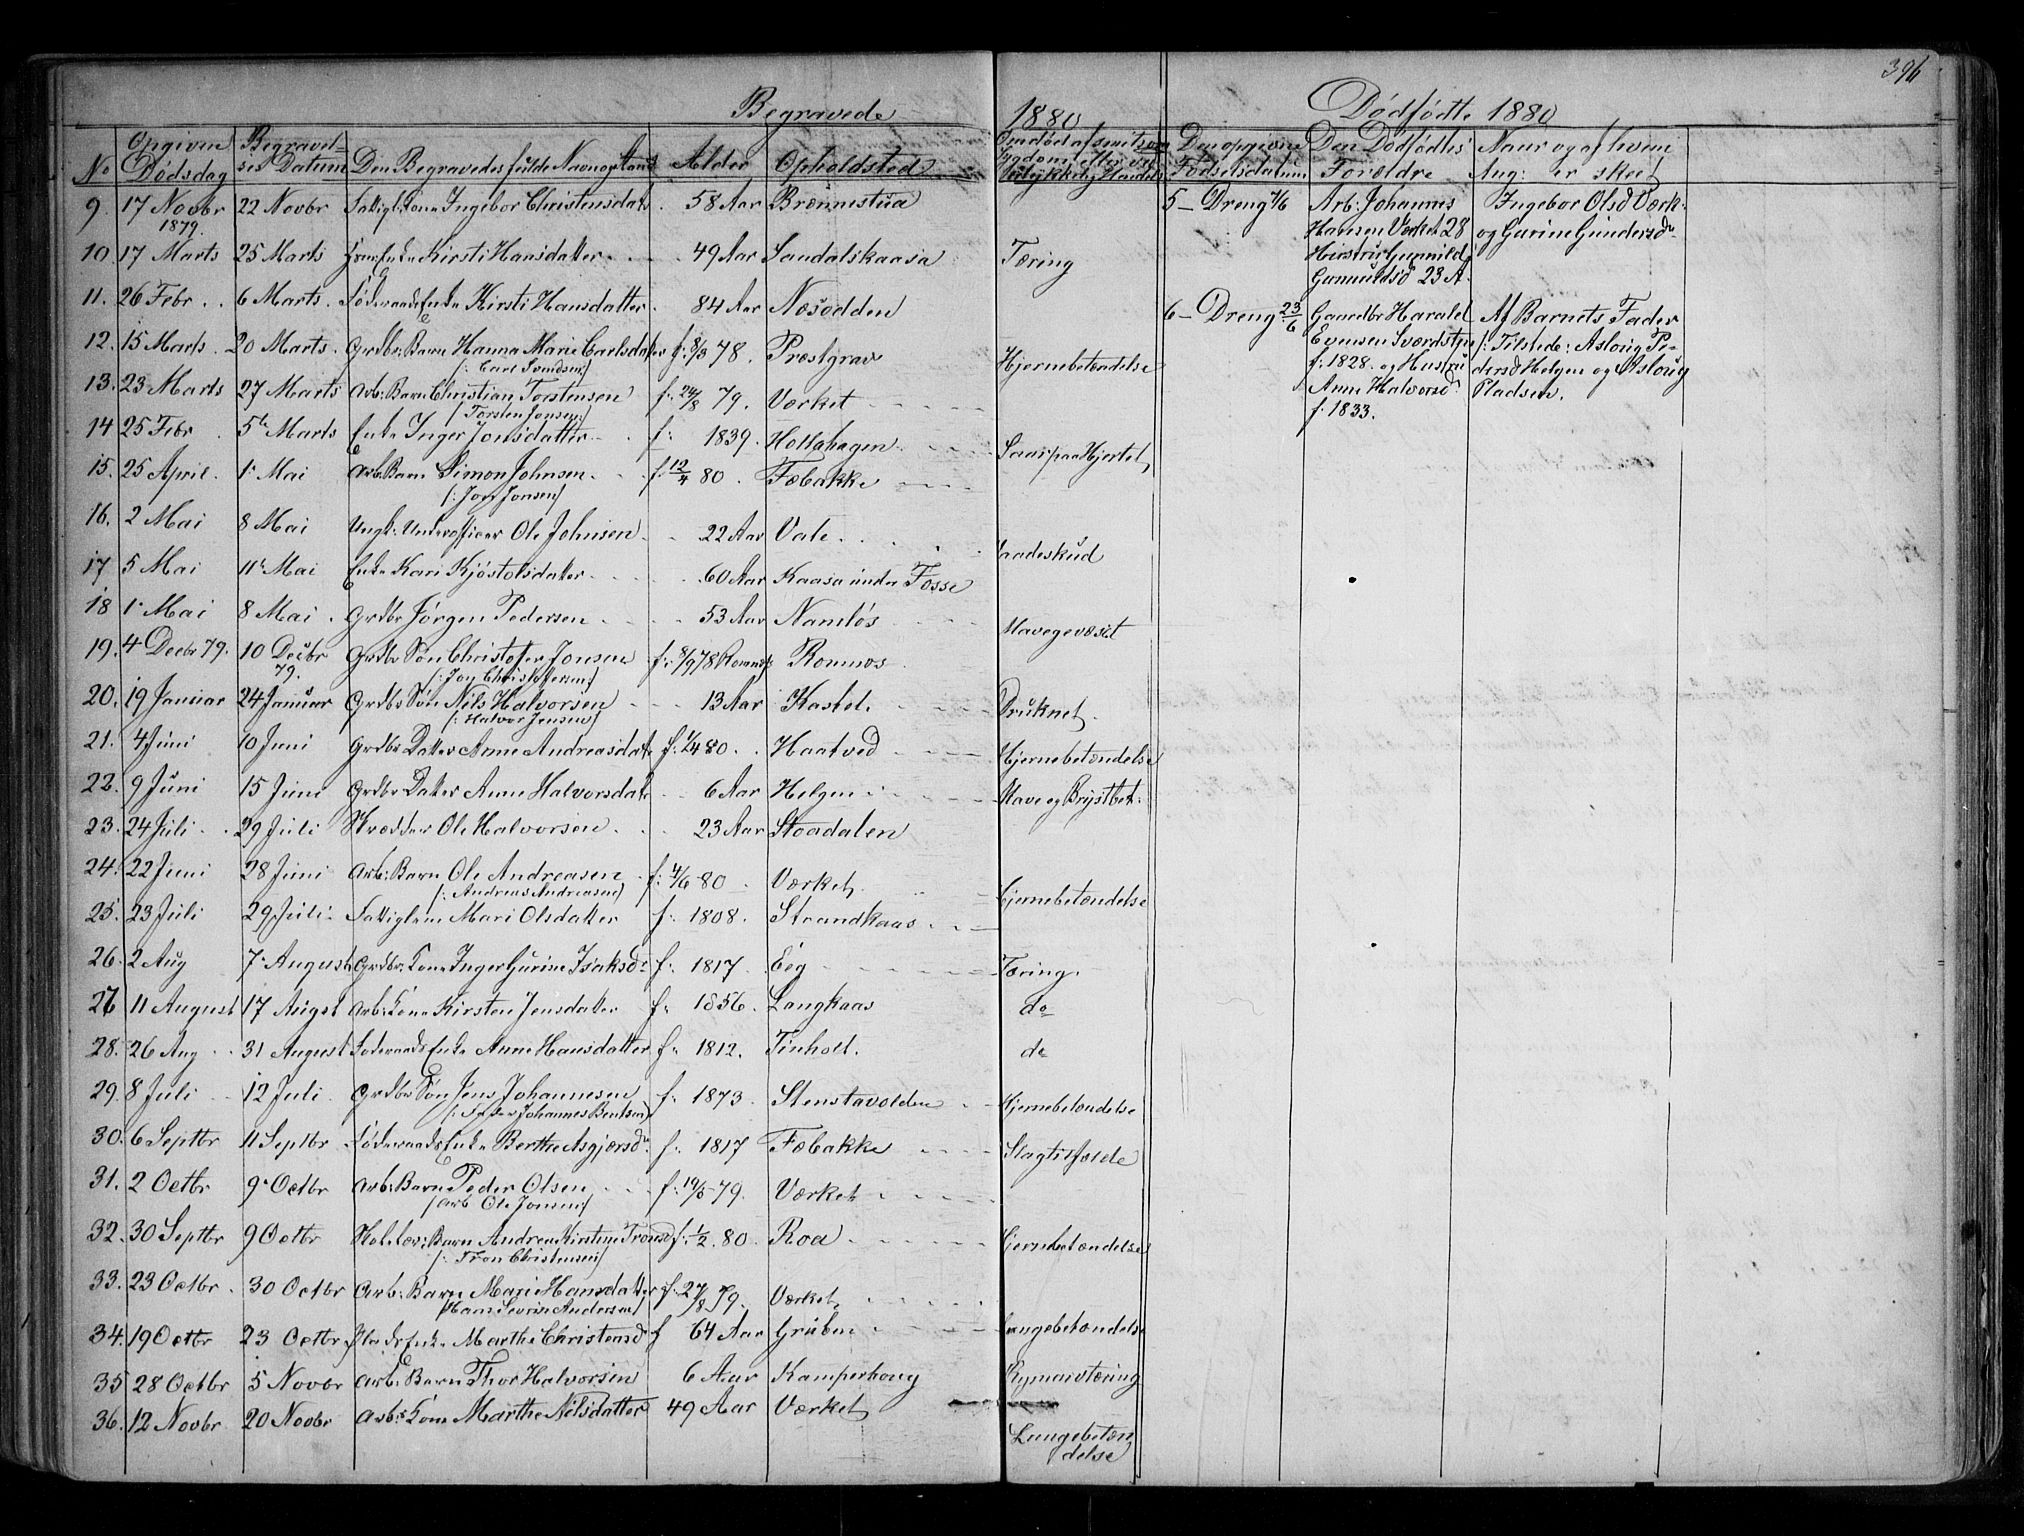 396
Begravede
1880
Dødfødte 1880
No
Opgiven Dødsdag
Begravelses Datum
Den Begravedes fulde Navn og Stand
Alder
Opholdsted
Den opgivne Fødselsdatum
Den Dødfødtes Forældre
Naar og af hvem Anm: er skeet
9. 17 Novbr 1879. 22 Novbr Fattigl: Kone Ingebor Christensdatr. 58 Aar Brænnestua
10. 17 Marts 25 Marts Enke Kirsti Hansdatter 49 Aar Sandalskaasa Tæring
11. 26 Febr. 6 Marts. Føderaads Enke Kirsti Hansdatter. 84 Aar Næsodden
12. 15 Marts. 20 Marts. Grdbr: Barn Hanna Marie Carlsdatter f: 8/3 78. Præstgrav Hjernebetændelse
(: Carl Svendsen:)
13. 23 Marts 27 Marts Arb: Barn Christian Torstensen f: 24/8 79. Værket
(: Torsten Jonsen:)
14 25 Febr. 5te Marts Enke Inger Jonsdatter f: 1839. Hollahagen Saar paa Hjertet
15. 25 April. 1. Mai Arb: Barn Simon Johnsen. f: 12/4 80. Fæbakke
(: Jon Jonsen:)
16. 2 Mai 8 Mai Ungk: Underofficer Ole Johnsen 22 Aar Vale. Vaadeskud
17 5 Mai 11. Mai Enke Kari Kjøstolsdatter 60 Aar Kaasa under Fosse
18 1. Mai 8 Mai. Grdbr Jørgen Pedersen 53 Aar Namløs Mavegevæxt
19. 4 Decbr 79. 10 Decbr 79. Grdbr Søn Christofer Jonsen f: 8/9 78 Romnæs
(: Jon Christofersen:)
20. 19 Januar 24 Januar Grdbr Søn Nils Halvorsen 13 Aar Kastet. Druknet.
(: Halvor Jensen:)
21. 4 Juni 10 Juni Grdbr Datter Anne Andreasdatr f: 1/4 80. Haatved Hjernebetændelse
22. 9 Juni 15 Juni Grdbr Datter Anne Halvorsdatr 6 Aar Helgen Mave og Brystbet:
23. 24 Juli. 29 Juli Skrædder Ole Halvorsen. 23 Aar Stoadalen
24. 22 Juni 28 Juni Arb: Barn Ole Andreasen f: 4/6 80 Værket. Hjernebetændelse
(: Andreas Andreasen:)
25. 23 Juli 29 Juli Fattiglem Mari Olsdatter f: 1808. Strandkaas
26. 2 Aug 7. August Grdbr: Kone Inger Gurine Isaksdr f: 1817. Eeg Tæring.
27 11 August 17 August Arb: Kone Kirsten Jensdatter f: 1856. Langkaas do
28. 26 Aug 31 August Føderaads Enke Anne Hansdatter f: 1812. Tinholt. do
29. 8 Juli 12 Juli Grdbr Søn Jens Johannesen f: 1873 Stenstavolden Hjernebetændelse
(: Johannes Bentsen:)
30. 6 Septbr 11 Septbr Føderaads Enke Berthe Asgjersdr. f: 1817 Fæbakke Slagtilfælde
31. 2 Octbr 9. Octbr Arb: Barn Peder Olsen f: 19/5 79. Værket
(Arb. Ole Jonsen:)
32. 30 Septbr 9 Octbr Barn Andrea Kirstine Tronsd f: 1/2 80. Roa Hjernebetændelse
(: Tron Christensen:)
33. 23 Octbr. 30 Octbr Arb: Barn Marie Hansdatter f: 27/8 79. Værket
(Hans Severin Andersen:)
34. 19 Octbr 23 Octbr Enke Marthe Christensd 64 Aar Gruben Lungebetændelse
35 28 Octbr 5 Novbr Arb: Barn Thor Halvorsen 6 Aar Kamperhoug
36. 12 Novbr 20 Novbr Arbr: Kone Marthe Nilsdatter 49 Aar Værket Lungebetændelse
5 - Dreng
Arb: Johannes
Hansen Værket 28
Hustru Gunnild
23 A.
Ingebor Olsd Værk.
og Gurine Gundersdr
6 - Dreng 23/6
Gaardbr Harald
Evensen Sværdstju
f: 1828. og Hustru
Anne Halvorsdr
f: 1833.
Af Barnets Fader
Tilstede: Asloug Pe-
dersd Helgen og Aslaug
Pladsen.